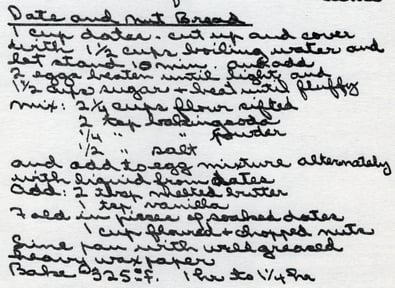 Date and nut Bread
1 cup dates - cut up and cover
with 1 1/2 cups boiling water and
let stand 10 min. and add
2 eggs beaten until light, and
1 1/2 cups sugar + beat until fluffy
mix: 2 1/4 cups flour sifted
2 tsp baking soda
1/4 " " powder
1/2 " salt
and add to egg mixture alternately
with liquid from dates
add: 2 tbsp melted butter
1 tsp vanilla
Fold in pieces of soaked dates
1 cup floured + chopped nuts
Line pan with well greased
heavy wax paper
Bake 325°F. 1 hr to 1 1/4 hr